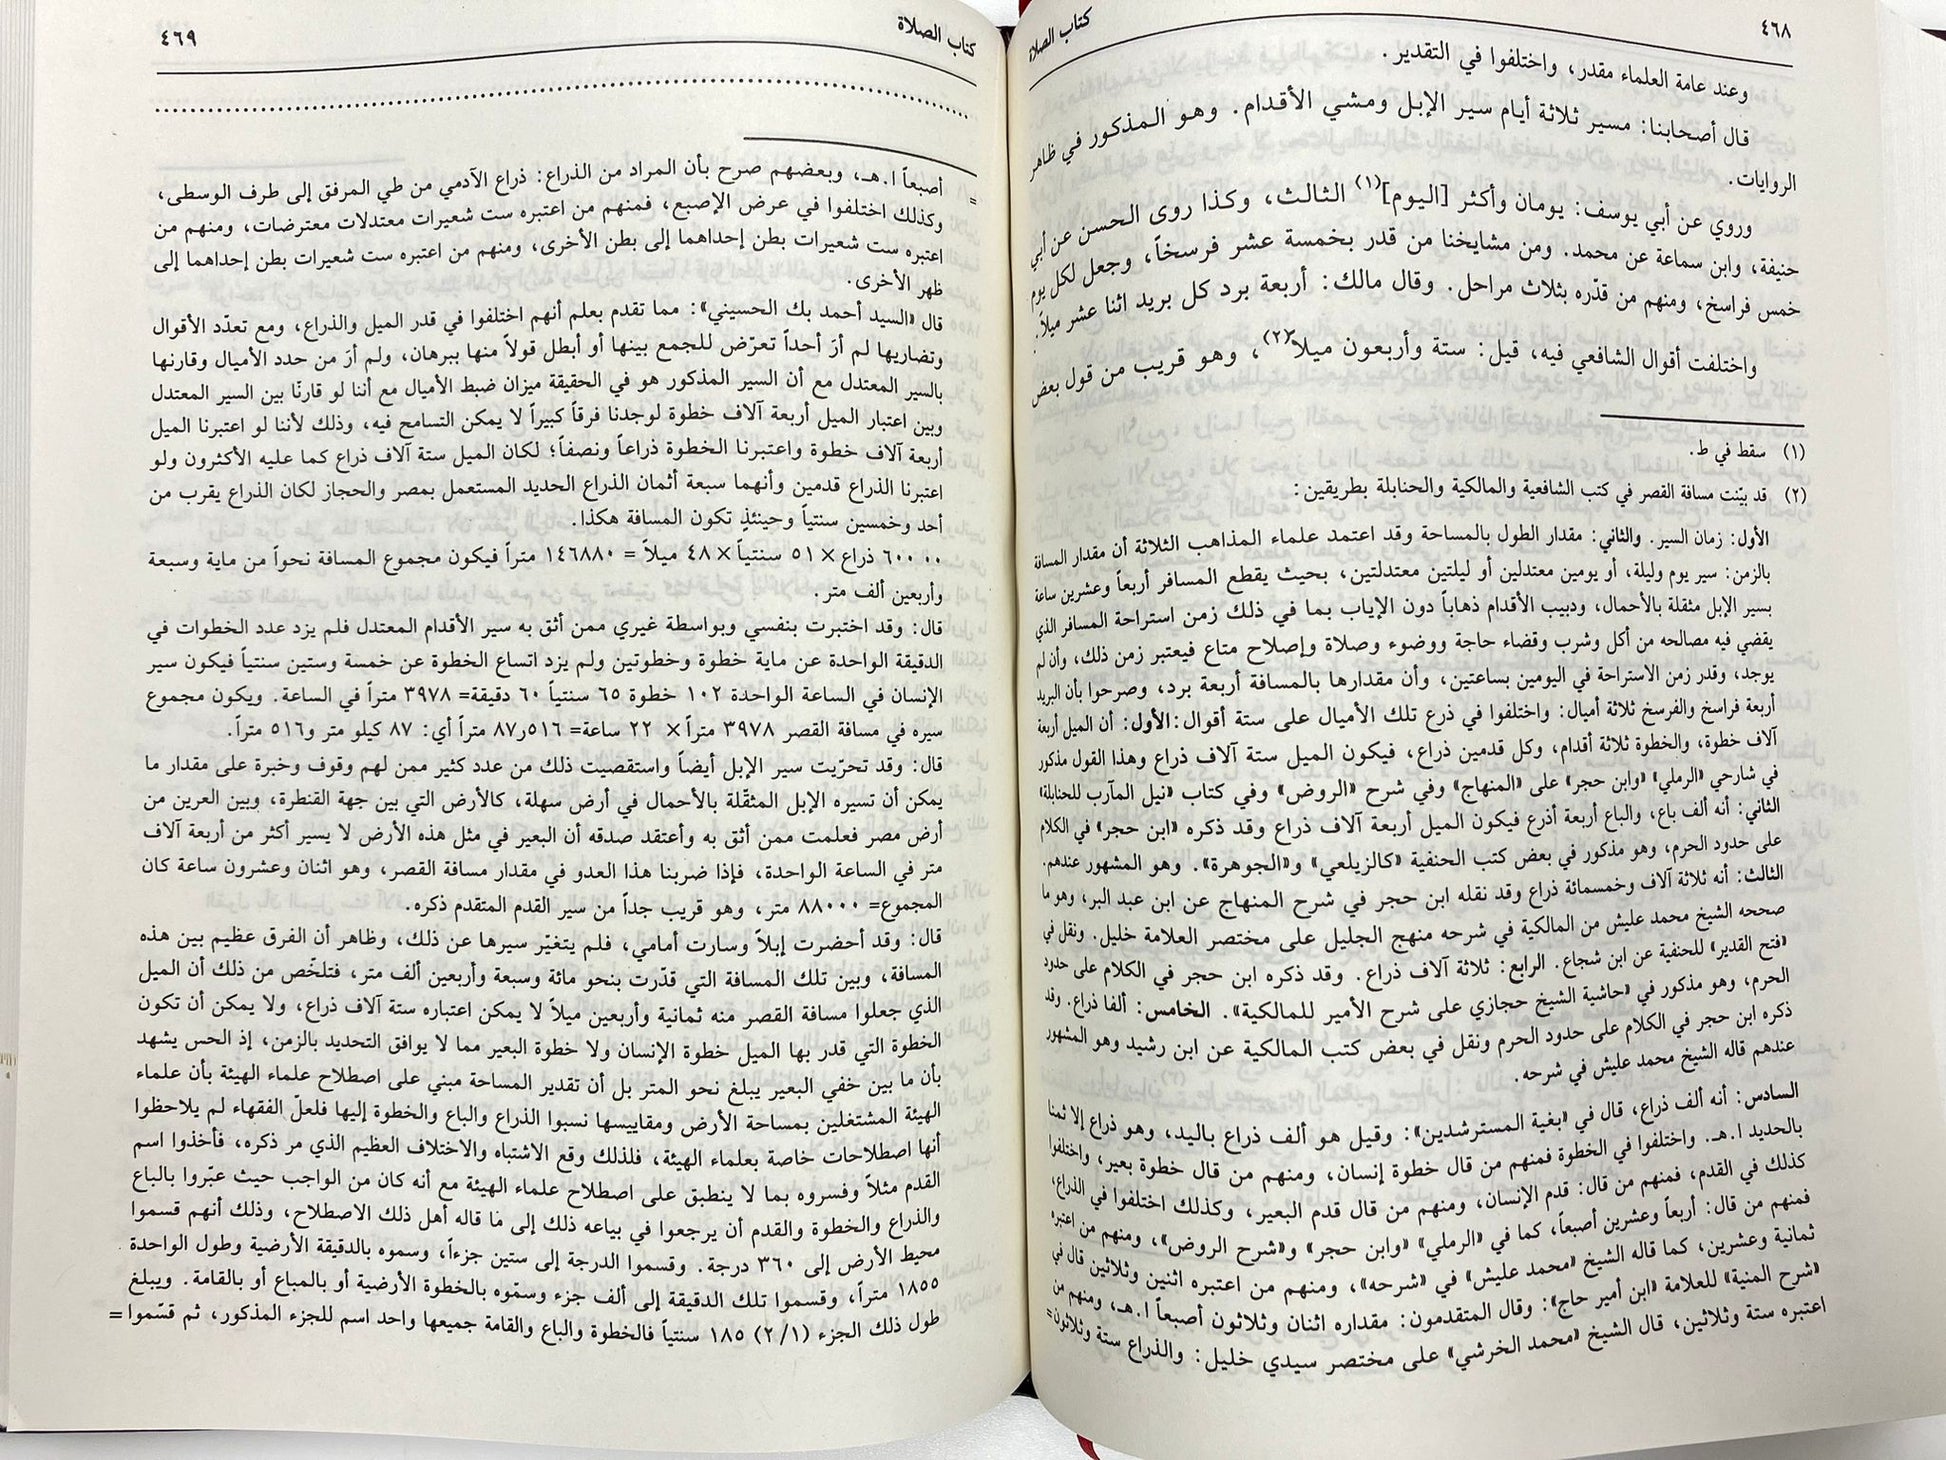 ٤٦٨
كتاب الصلاة
وعند عامة العلماء مقدر، واختلفوا في التقدير.
قال أصحابنا: مسير ثلاثة أيام سير الإبل ومشي الأقدام. وهو المذكور في ظاهر
الروايات.
وروي عن أبي يوسف: يومان وأكثر [اليوم](١) الثالث، وكذا روى الحسن عن أبي
حنيفة، وابن سماعة عن محمد. ومن مشايخنا من قدر بخمسة عشر فرسخاً، وجعل لكل يوم
خمس فراسخ، ومنهم من قدّره بثلاث مراحل. وقال مالك: أربعة برد كل بريد اثنا عشر ميلاً.
واختلفت أقوال الشافعي فيه، قيل: ستة وأربعون ميلاً(٢)، وهو قريب من قول بعض
(١) سقط في ط.
(٢) قد بيّنت مسافة القصر في كتب الشافعية والمالكية والحنابلة بطريقين:
الأول: زمان السير. والثاني: مقدار الطول بالمساحة وقد اعتمد علماء المذاهب الثلاثة أن مقدار المسافة
بالزمن: سير يوم وليلة، أو يومين معتدلين أو ليلتين معتدلتين، بحيث يقطع المسافر أربعاً وعشرين ساعة
بسير الإبل مثقلة بالأحمال، ودبيب الأقدام ذهاباً دون الإياب بما في ذلك زمن استراحة المسافر الذي
يقضي فيه مصالحه من أكل وشرب وقضاء حاجة ووضوء وصلاة وإصلاح متاع فيعتبر زمن ذلك، وأن لم
يوجد، وقدر زمن الاستراحة في اليومين بساعتين، وأن مقدارها بالمسافة أربعة برد، وصرحوا بأن البريد
أربعة فراسخ والفرسخ ثلاثة أميال: واختلفوا في ذرع تلك الأميال على ستة أقوال: الأول: أن الميل أربعة
آلاف خطوة، والخطوة ثلاثة أقدام، وكل قدمين ذراع، فيكون الميل ستة آلاف ذراع وهذا القول مذكور
في شارحي «الرملي» «وابن حجر» على «المنهاج» وفي شرح «الروض» وفي كتاب «نيل المآرب للحنابلة»
الثاني: أنه ألف باع، والباع أربعة أذرع فيكون الميل أربعة آلاف ذراع وقد ذكره «ابن حجر» في الكلام
على حدود الحرم، وهو مذكور في بعض كتب الحنفية «كالزيلعي» و«الجوهرة». وهو المشهور عندهم.
الثالث: أنه ثلاثة آلاف وخمسمائة ذراع وقد نقله ابن حجر في شرح المنهاج عن ابن عبد البر، وهو ما
صححه الشيخ محمد عليش من المالكية في شرحه منهج الجليل على مختصر العلامة خليل. ونقل في
«فتح القدير» للحنفية عن ابن شجاع. الرابع: ثلاثة آلاف ذراع. وقد ذكره ابن حجر في الكلام على حدود
الحرم، وهو مذكور في «حاشية الشيخ حجازي على شرح الأمير للمالكية». الخامس: ألفا ذراع. وقد
ذكره ابن حجر في الكلام على حدود الحرم ونقل في بعض كتب المالكية عن ابن رشيد وهو المشهور
عندهم قاله الشيخ محمد عليش في شرحه.
السادس: أنه ألف ذراع، قال في «بغية المسترشدين»: وقيل هو ألف ذراع باليد، وهو ذراع إلا ثمنا
بالحديد ا.هـ. واختلفوا في الخطوة فمنهم من قال خطوة إنسان، ومنهم من قال خطوة بعير، واختلفوا
كذلك في القدم، فمنهم من قال: قدم الإنسان، ومنهم من قال قدم البعير، وكذلك اختلفوا في الذراع،
فمنهم من قال: أربعاً وعشرين أصبعاً، كما في «الرملي» «وابن حجر» و«شرح الروض»، ومنهم من اعتبره
ثمانية وعشرين، كما قاله الشيخ «محمد عليش» في «شرحه»، ومنهم من اعتبره اثنين وثلاثين قال في
«شرح المنية» للعلامة «ابن أمير حاج»: وقال المتقدمون: مقداره اثنان وثلاثون أصبعاً ا.هـ، ومنهم من
اعتبره ستة وثلاثين، قال الشيخ «محمد الخرشي» على مختصر سيدي خليل: والذراع ستة وثلاثون=
كتاب الصلاة
٤٦٩
= أصبعاً ا.هـ، وبعضهم صرح بأن المراد من الذراع: ذراع الآدمي من طي المرفق إلى طرف الوسطى،
وكذلك اختلفوا في عرض الإصبع، فمنهم من اعتبره ست شعيرات معتدلات معترضات، ومنهم من
اعتبره ست شعيرات بطن إحداهما إلى بطن الأخرى، ومنهم من اعتبره ست شعيرات بطن إحداهما إلى
ظهر الأخرى.
قال «السيد أحمد بك الحسيني»: مما تقدم يعلم أنهم اختلفوا في قدر الميل والذراع، ومع تعدّد الأقوال
وتضاربها لم أرَ أحداً تعرّض للجمع بينها أو أبطل قولاً منها ببرهان، ولم أرَ من حدد الأميال وقارنها
بالسير المعتدل مع أن السير المذكور هو في الحقيقة ميزان ضبط الأميال مع أننا لو قارنّا بين السير المعتدل
وبين اعتبار الميل أربعة آلاف خطوة لوجدنا فرقاً كبيراً لا يمكن التسامح فيه، وذلك لأننا لو اعتبرنا الميل
أربعة آلاف خطوة واعتبرنا الخطوة ذراعاً ونصفاً؛ لكان الميل ستة آلاف ذراع كما عليه الأكثرون ولو
اعتبرنا الذراع قدمين وأنهما سبعة أثمان الذراع الحديد المستعمل بمصر والحجاز لكان الذراع يقرب من
أحد وخمسين سنتياً وحينئذٍ تكون المسافة هكذا.
٦٠٠٠٠ ذراع × ٥١ سنتياً × ٤٨ ميلاً = ١٤٦٨٨٠ متراً فيكون مجموع المسافة نحواً من ماية وسبعة
وأربعين ألف متر.
قال: وقد اختبرت بنفسي وبواسطة غيري ممن أثق به سير الأقدام المعتدل فلم يزد عدد الخطوات في
الدقيقة الواحدة عن ماية خطوة وخطوتين ولم يزد اتساع الخطوة عن خمسة وستين سنتياً فيكون سير
الإنسان في الساعة الواحدة ١٠٢ خطوة ٦٥ سنتياً ٦٠ دقيقة= ٣٩٧٨ متراً في الساعة. ويكون مجموع
سيره في مسافة القصر ٣٩٧٨ متراً × ٢٢ ساعة= ٥١٦ر٨٧ متراً أي: ٨٧ كيلو متر و٥١٦ متراً.
قال: وقد تحرّيت سير الإبل أيضاً واستقصيت ذلك من عدد كثير ممن لهم وقوف وخبرة على مقدار ما
يمكن أن تسيره الإبل المثقّلة بالأحمال في أرض سهلة، كالأرض التي بين جهة القنطرة، وبين العرين من
أرض مصر فعلمت ممن أثق به وأعتقد صدقه أن البعير في مثل هذه الأرض لا يسير أكثر من أربعة آلاف
متر في الساعة الواحدة، فإذا ضربنا هذا العدو في مقدار مسافة القصر، وهو اثنان وعشرون ساعة كان
المجموع= ٨٨٠٠٠ متر، وهو قريب جداً من سير القدم المتقدم ذكره.
قال: وقد أحضرت إبلاً وسارت أمامي، فلم يتغيّر سيرها عن ذلك، وظاهر أن الفرق عظيم بين هذه
المسافة، وبين تلك المسافة التي قدّرت بنحو مائة وسبعة وأربعين ألف متر، فتلخّص من ذلك أن الميل
الذي جعلوا مسافة القصر منه ثمانية وأربعين ميلاً لا يمكن اعتباره ستة آلاف ذراع، ولا يمكن أن تكون
الخطوة التي قدر بها الميل خطوة الإنسان ولا خطوة البعير مما لا يوافق التحديد بالزمن، إذ الحس يشهد
بأن ما بين خفي البعير يبلغ نحو المتر بل أن تقدير المساحة مبني على اصطلاح علماء الهيئة بأن علماء
الهيئة المشتغلين بمساحة الأرض ومقاييسها نسبوا الذراع والباع والخطوة إليها فلعلّ الفقهاء لم يلاحظوا
أنها اصطلاحات خاصة بعلماء الهيئة، فلذلك وقع الاشتباه والاختلاف العظيم الذي مر ذكره، فأخذوا اسم
القدم مثلاً وفسروه بما لا ينطبق على اصطلاح علماء الهيئة مع أنه كان من الواجب حيث عبّروا بالباع
والذراع والخطوة والقدم أن يرجعوا في بياعه ذلك إلى ما قاله أهل ذلك الاصطلاح، وذلك أنهم قسموا
محيط الأرض إلى ٣٦٠ درجة. وقسموا الدرجة إلى ستين جزءاً، وسموه بالدقيقة الأرضية وطول الواحدة
١٨٥٥ متراً، وقسموا تلك الدقيقة إلى ألف جزء وسمّوه بالخطوة الأرضية أو بالمباع أو بالقامة. ويبلغ
طول ذلك الجزء (٢/١) ١٨٥ سنتياً فالخطوة والباع والقامة جميعها واحد اسم للجزء المذكور، ثم قسّموا=